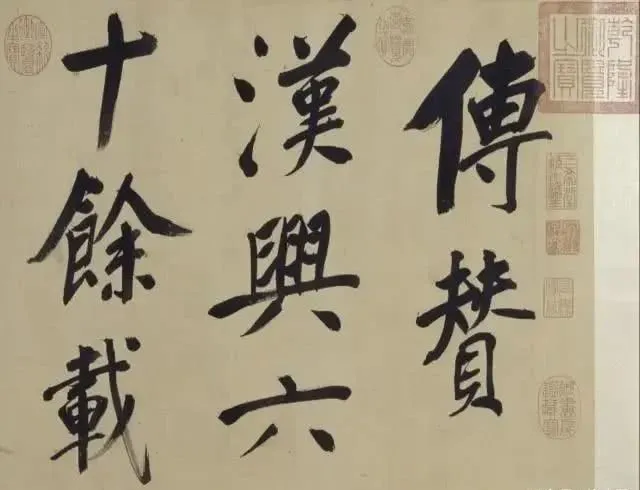 傳賛
漢興六
十餘載